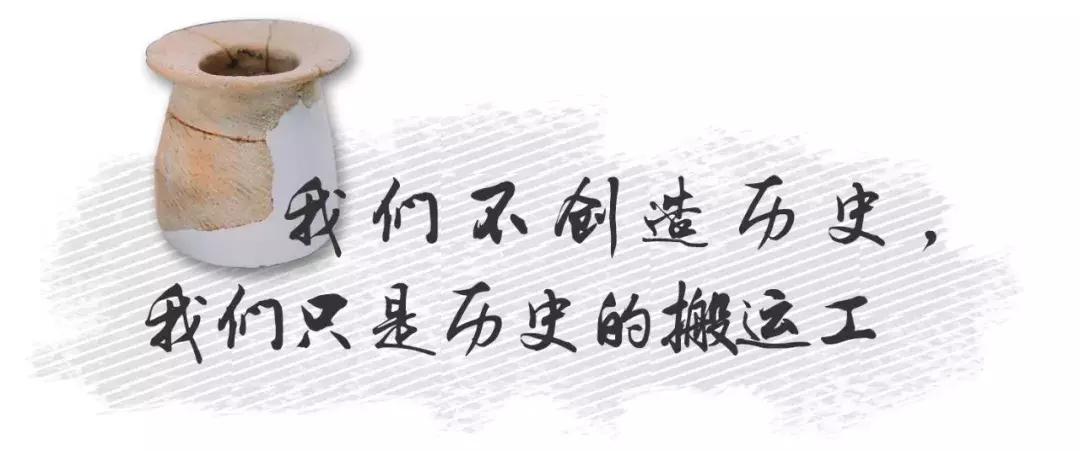 我们不创造历史，
我们只是历史的搬运工